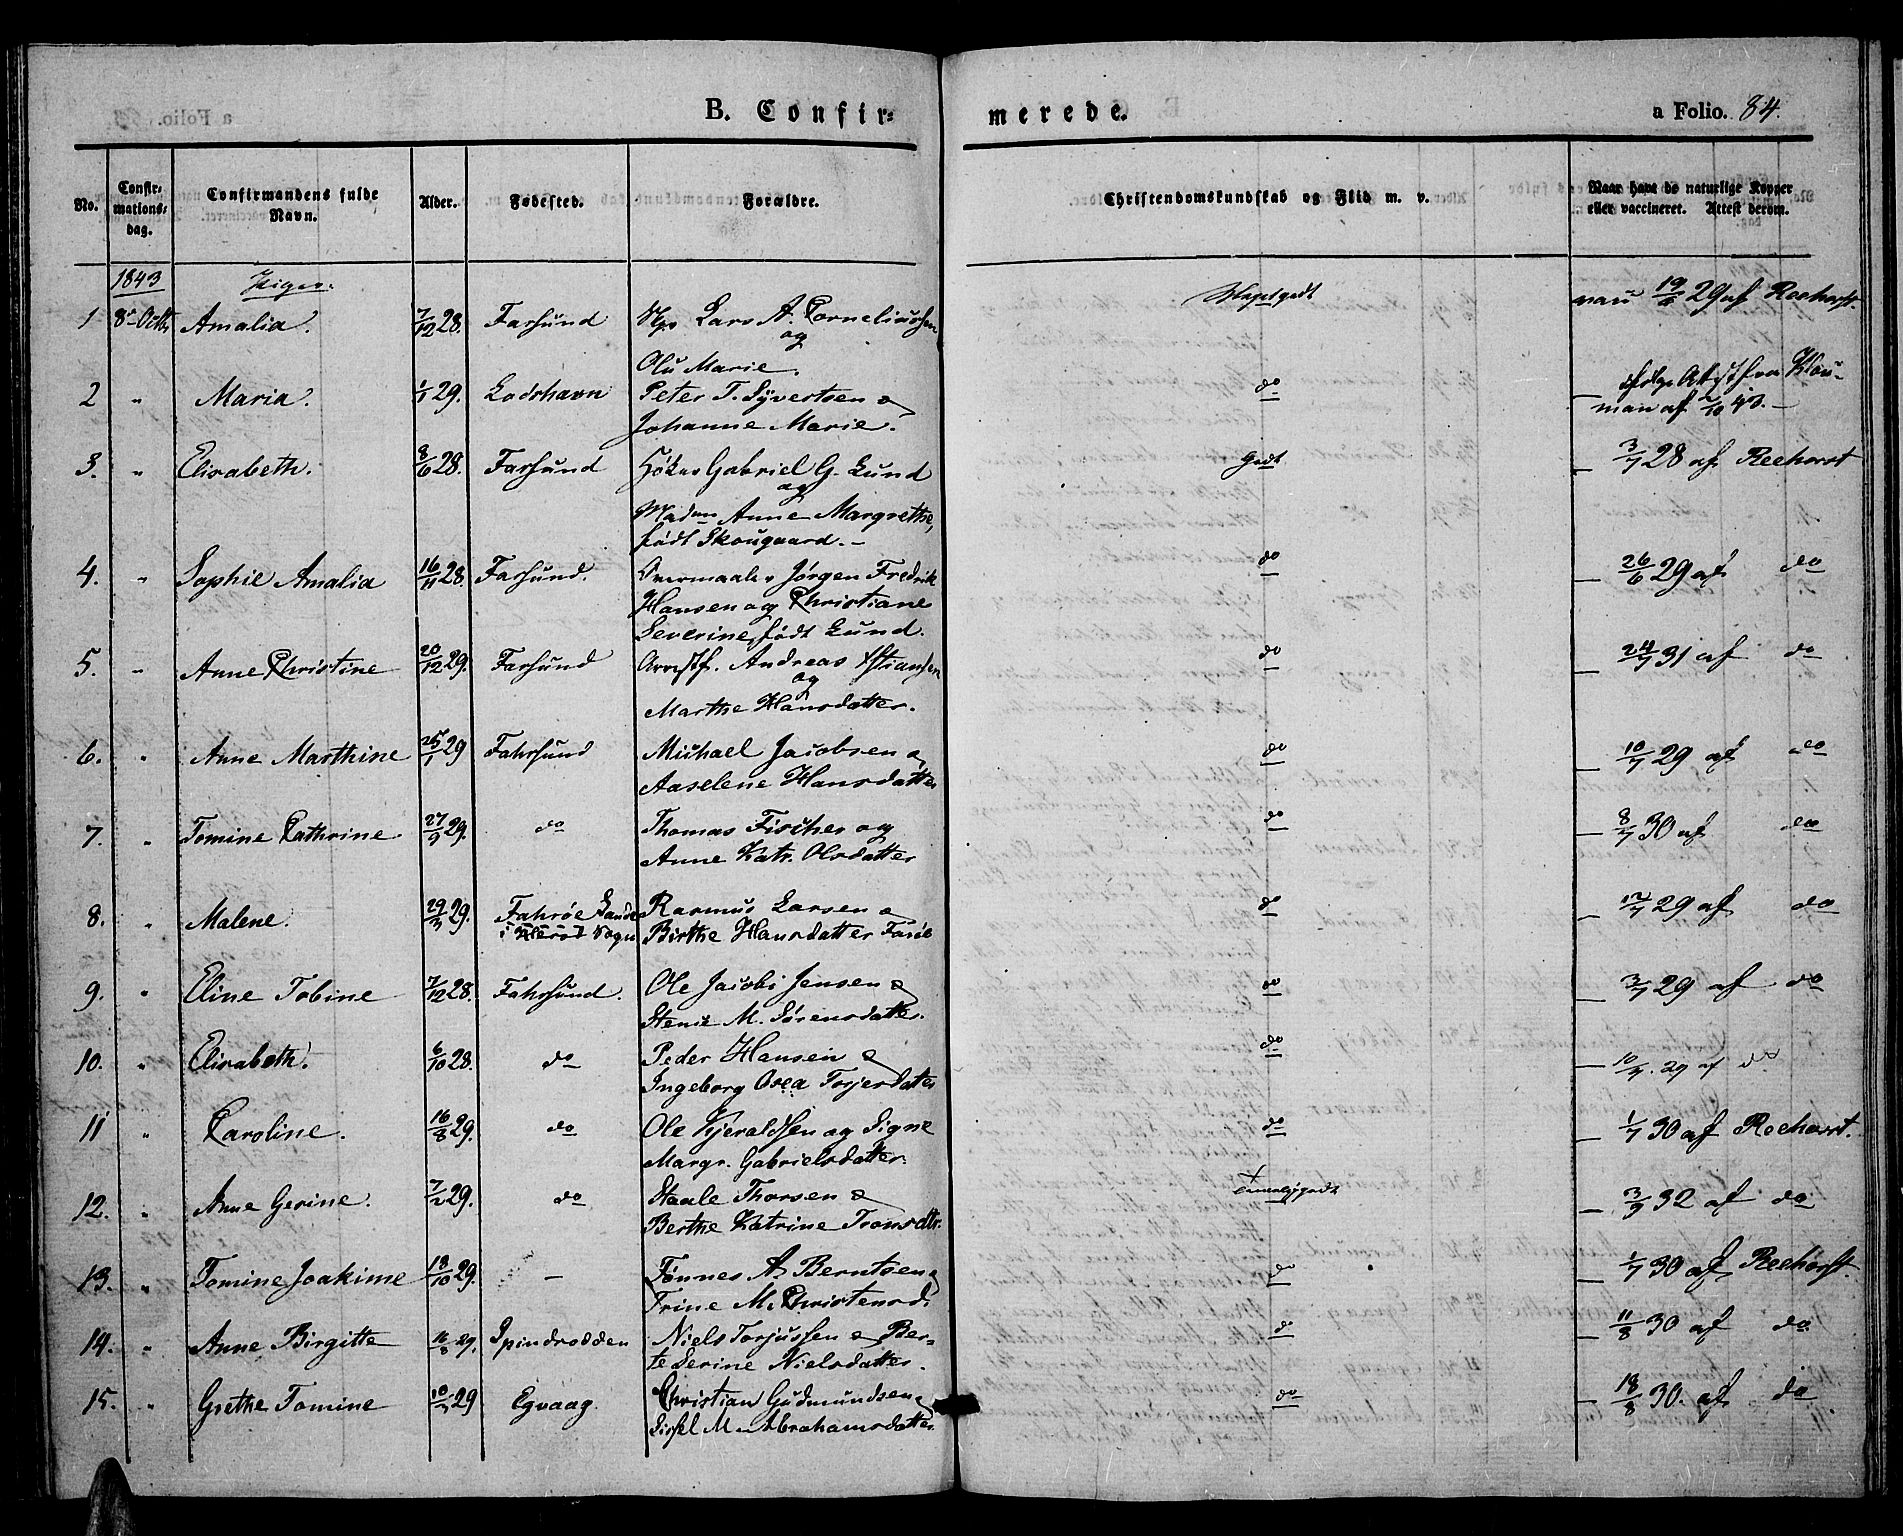 B. Confirmerede.
a Folio. 84.
No. Confirmationsdag. Confirmandens fulde Navn. Alder. Fødested. Forældre. Christendomskundskab og Flid m. v. Naar havt de naturlige Kopper eller vaccineret. Attest derom.
1843 Piger.
1 8de Octbr Amalia. 7/12 28. Farsund Lars A. Corneliussen og Meget godt 29 af Reehorst.
Olu Marie.
2 " Maria. 1/1 29. Lodshavn Peter T. Syvertsen & do ifølge Attest fra
Johanne Marie. man af 2/10 43.
3. " Elisabeth. 8/6 28. Farsund Gabriel G. Lund Godt 3/7 28 af Reehorst
og
Madm Anne Margrethe,
født Skougaard.
4. " Sophie Amalia 16/11 28. Farsund. Jørgen Fredrik do 26/6 29 af do
Hansen og Christiane
Severine, født Lund.
5. " Anne Christine 20/12 29. Farsund Arrestf. Andreas Xstiansen do 24/7 31 af do
og
Marthe Hansdatter.
6. " Anne Marthine 25/1 29 Fahrsund Michael Jacobsen & do 10/7 29 af do
Aaselene Hansdatter
7. " Tomine Cathrine 27/9 29. do Thomas Fischer og do 8/7 30 af do
Anne Katr. Olsdatter
8. " Malene. 29/3 29. Fahrøe Rasmus Larsen & do 12/7 29 af do
i Herød Sogn Birthe Hansdatter Farøe
9. " Eline Tobine 7/12 28. Fahrsund. Ole Jacobs Jensen & do 3/7 29 af do
Stenie M. Sørensdatter.
10. " Elisabeth. 6/10 28. do Peder Hansen & do 10/7 29 af do
Ingeborg Osea Torjersdatter
11 " Caroline. 16/8 29. do Ole Kjeraldsen og Signe do 1/7 30 af Reehorst.
Margr. Gabrielsdatter.
12. " Anne Gerine. 7/2 29. do Staale Thorsen & Temmelig godt 3/9 32 af do
Berthe Katrine Tronsdtr.
13. " Tomine Joakime 18/10 29. — Tønnes A. Berntsen & do 1/7 30 af Reehorst.
Trine M. Christensd.
14. " Anne Birgitte 16/8 29. Spindrodden Niels Torjussen & Ber- do 11/8 30 af do.
te Serine Nielsdatter.
15. " Grethe Tomine 10/3 29 Egvaag. Christian Gudmundsen & do 18/8 30. af do
Sissel M. Abrahamsdatter